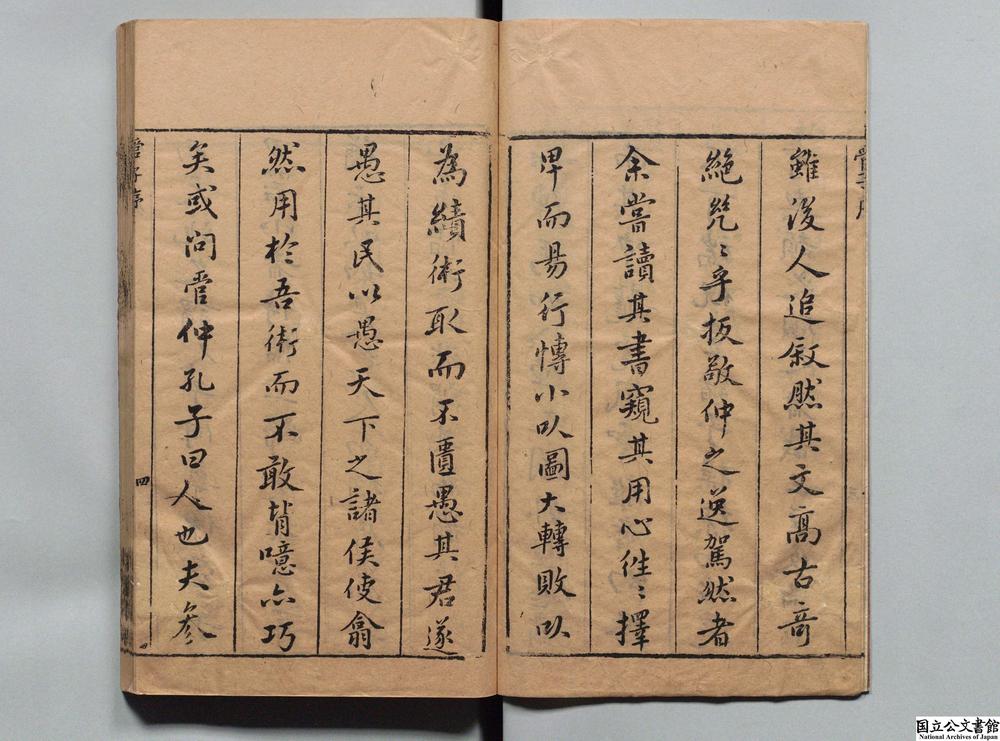 管子序
雖後人追叙然其文高古竒
絶〻乎扳敬仲之逸駕然者
余嘗讀其書窺其用心徃〻擇
卑而易行慱小以圖大轉敗以
為績術取而不匱愚其君遂
愚其民以愚天下之諸侯使翕
然用於吾術而不敢背噫亦巧
矣或問管仲孔子曰人也夫參
管子序
四
国立公文書館
National Archives of Japan